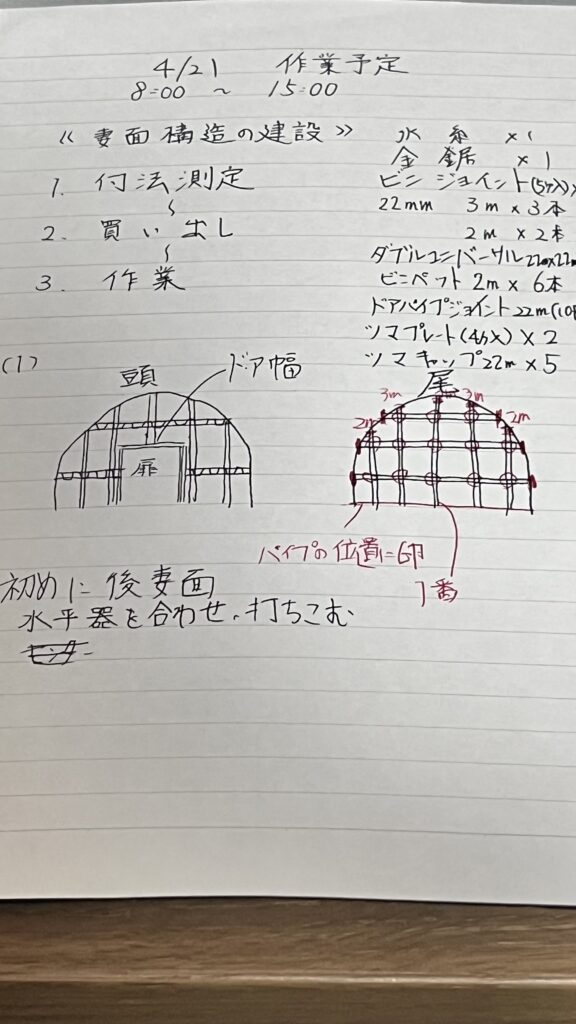 4/21 作業予定
8:00 ～ 15:00
≪ 妻面構造の建設 ≫
1. 付法測定
～
2. 買い出し
～
3. 作業
水糸 ×1
金鋸 ×1
ビニジョイント(5ヶ入)
22mm 3m×3本
2m×2本
ダブルユニバーサル 22m×22m
ビニペット 2m×6本
ドアパイプジョイント22m
ツマプレート ×2
ツマキャップ22m×5
(1)
頭
ドア幅
扉
尾
3m 3m
2m 2m
パイプの位置に印
1番
初めに後妻面
水平器を合わせ、打ちこむ